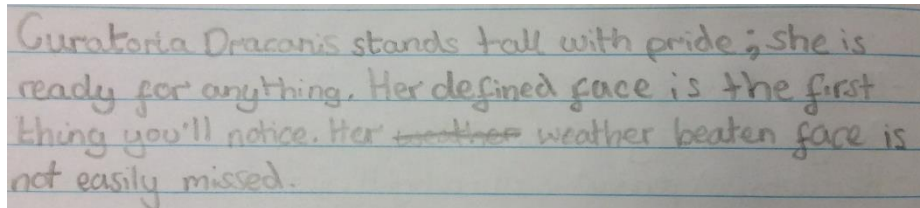 Curatoria Dracanis stands tall with pride; she is
ready for anything. Her defined face is the first
thing you'll notice. Her weather beaten face is
not easily missed.